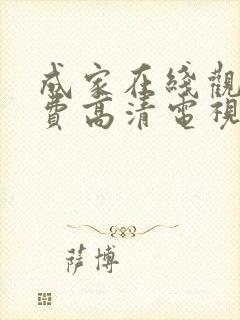 成家在綫觀
費高清電視
薩博